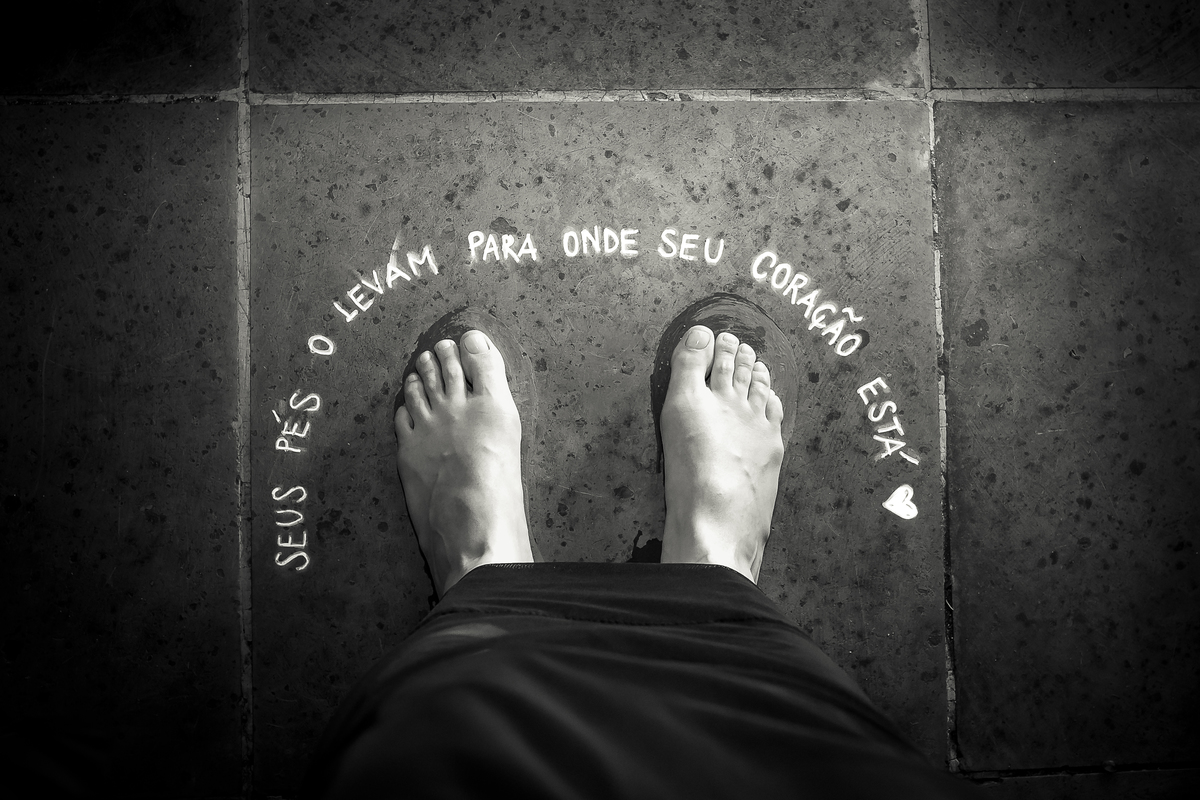 SEUS PÉS O LEVAM PARA ONDE SEU CORAÇÃO ESTÁ